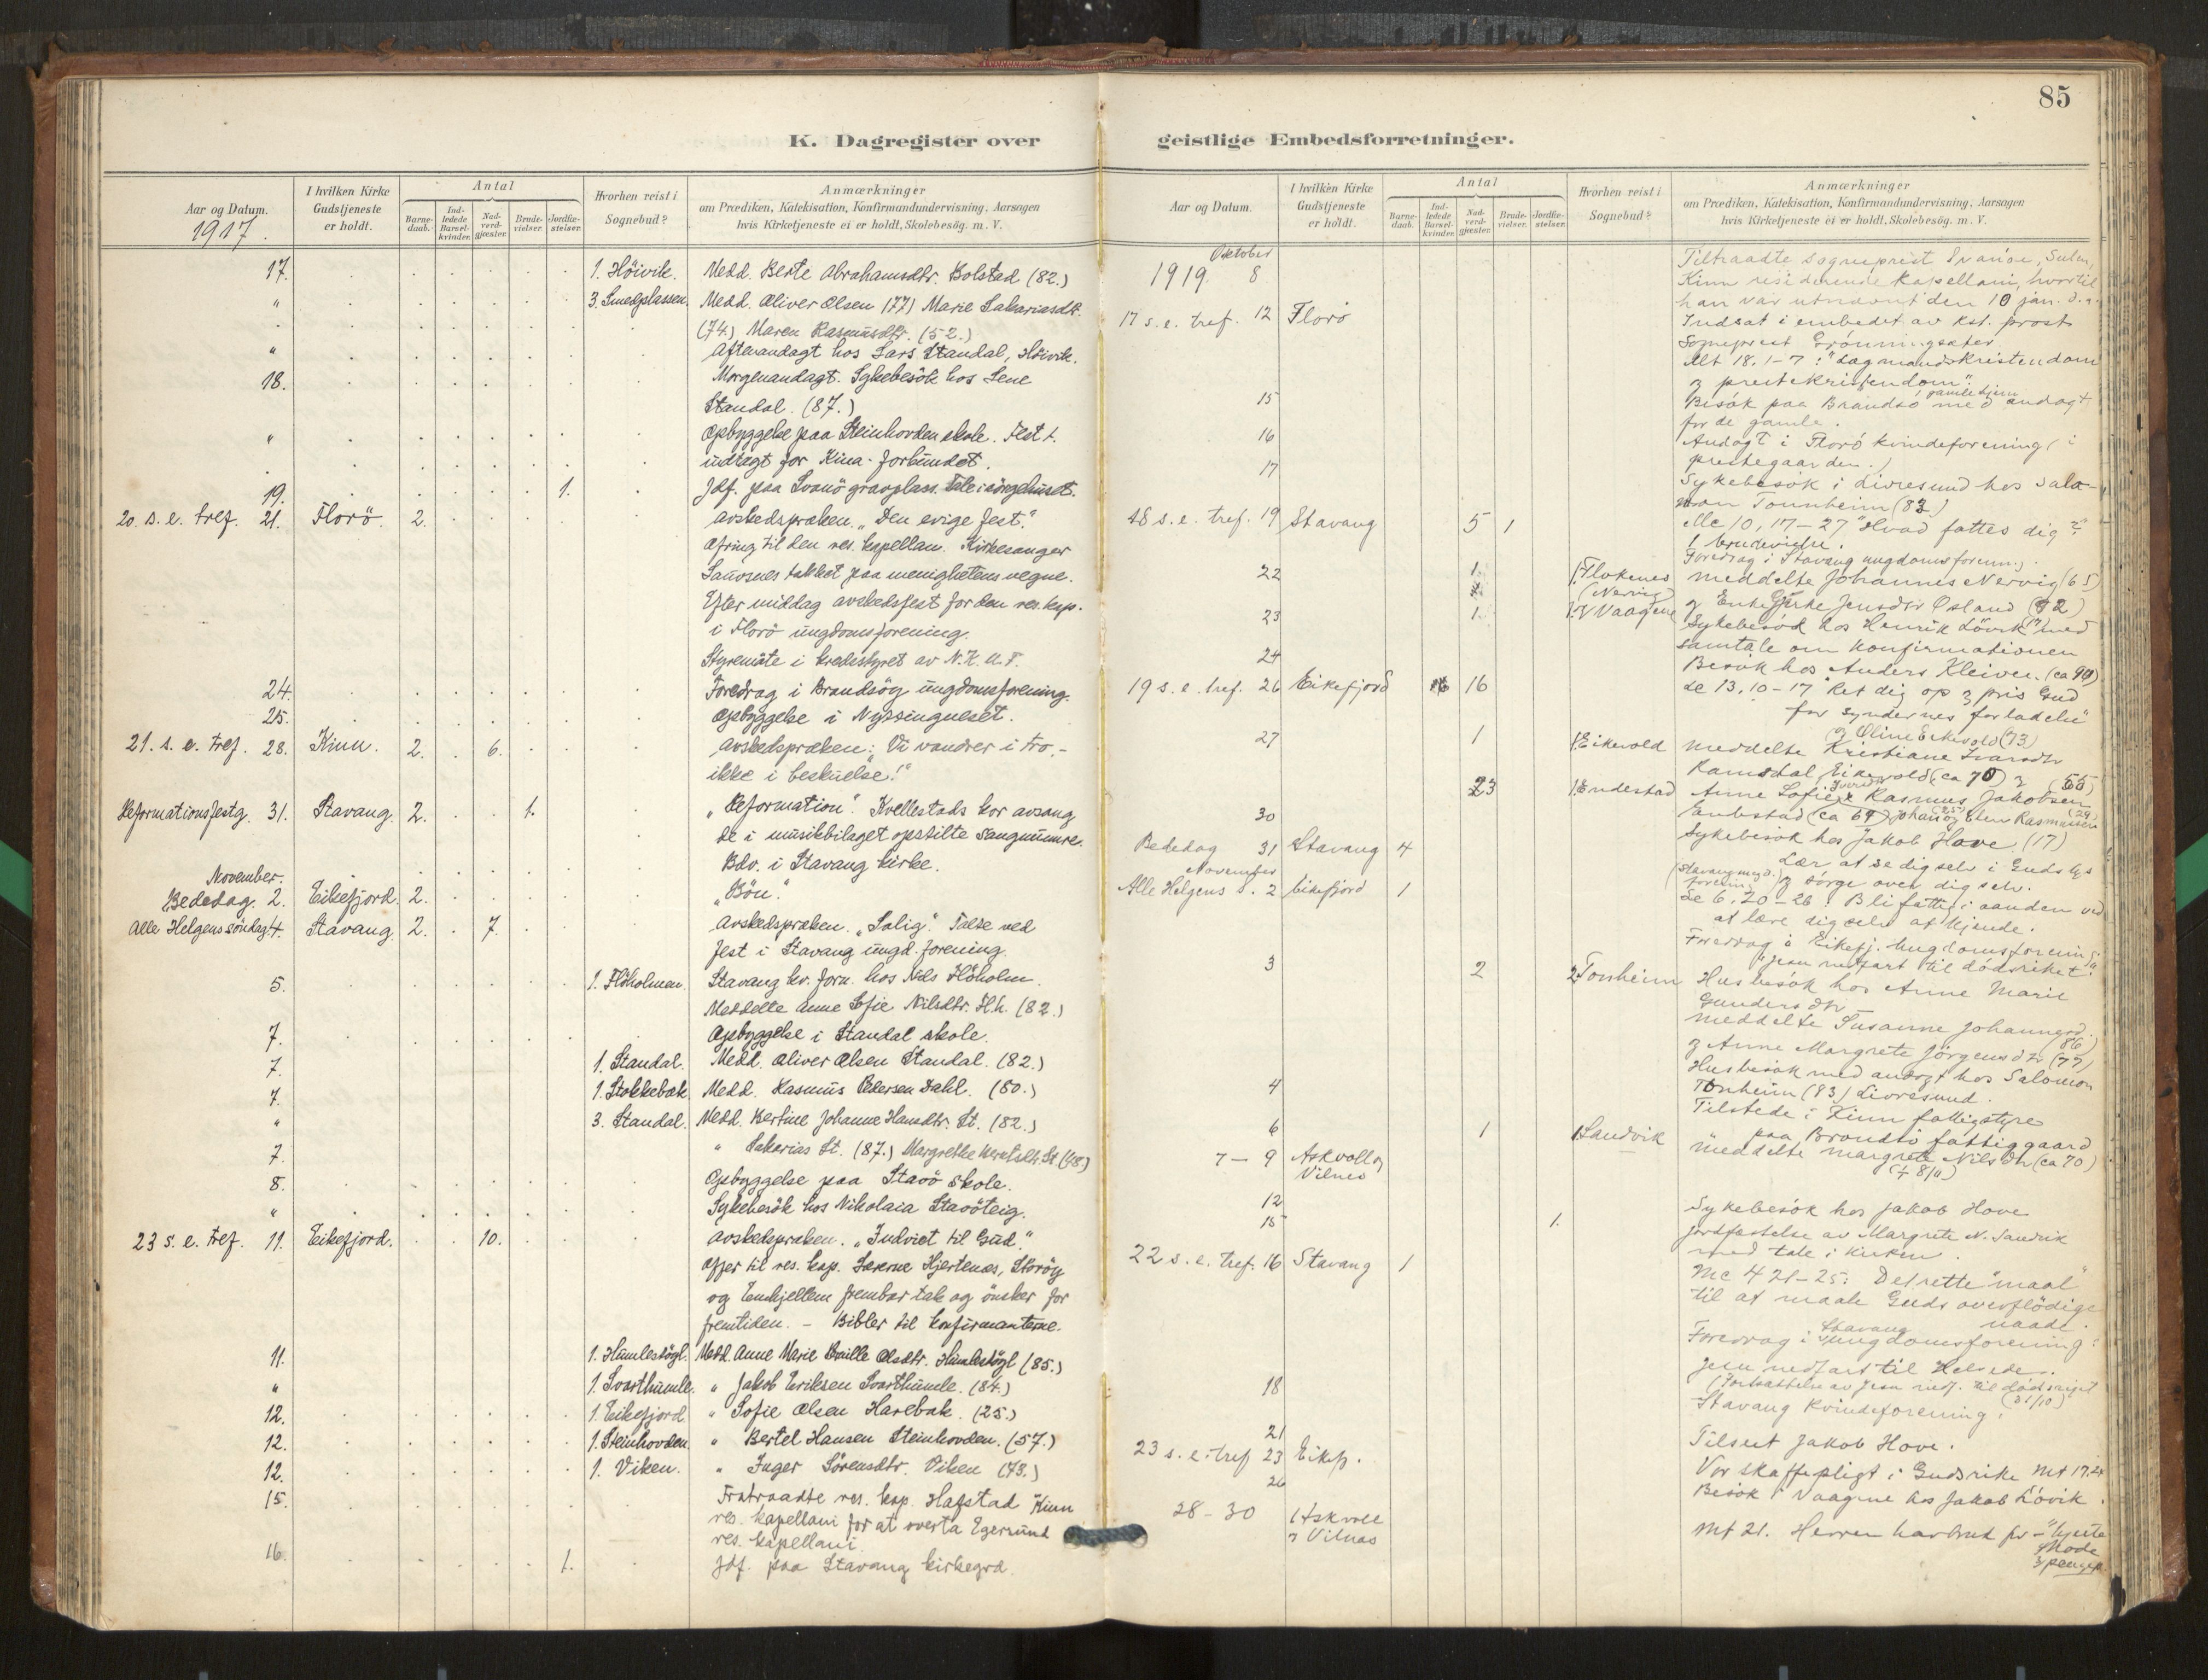 85
K. Dagregister over
geistlige Embedsforretninger.
Aar og Datum.
1917.
I hvilken Kirke Gudstjeneste er holdt.
Antal
Barnedaab.
Indledede Barselkvinder.
Nadverdgjæster.
Brudevielser.
Jordfæstelser.
Hvorhen reist i Sognebud?
Anmærkninger
om Prædiken, Katekisation, Konfirmandundervisning, Aarsagen
hvis Kirketjeneste ei er holdt, Skolebesög. m. V.
17. 1. Höivik. Medd. Berte Abrahamsdtr. Bolstad (82.)
" 3. Smedplassen. Medd. Oliver Olsen (77) Marie Sakariasdtr.
(74.) Maren Rasmusdtr. (52.)
" Aftenandagt hos Lars Standal, Höivik.
18. Morgenandagt. Sykebesök hos Lene
Standal. (87.)
" Opbyggelse paa Steinhovden skole. Fest t.
indtægt for Kina-forbundet.
19. 1. Jdf. paa Svanö gravplass. Tale i sörgehuset.
20. s. e. tref. 21. Florö. 2. Avskedspræken. "Den evige fest."
Ofring til den res. kapellan. Kirkesanger
takket paa menighetens vegne.
Eftermiddag avskedsfest for den res. kap.
i Florö ungdomsforening.
Styremöte i kredsstyret av N.K.U.F.
24. Foredrag i Brandsöy ungdomsforening.
25. Opbyggelse i
21. s. e. tref. 28. Kinn. 2. 6. Avskedspræken: "Vi vandrer i tro -
ikke i beskuelse!"
Reformationsfestg. 31. Stavang. 2. 1. "Reformation". Kvellestads kor avsang
de i musikbilaget opstilte sangnumre.
Bdv. i Stavang kirke.
November.
Bededag. 2. Eikefjord. 2. "Bön."
Alle Helgens söndag. 4. Stavang. 2. 7. Avskedspræken. "Salig." Talse ved
fest i Stavang ungd. forening.
5. 1. Flöholmen. Stavang kv. forn. hos Nils Flöholm.
Meddelte Anne Sofie Nilsdtr. Flh. (82.)
7. Opbyggelse i Standal skole.
7. 1. Standal. Medd. Oliver Olsen Standal. (82.)
7. 1. Stokkebæk. Medd. Rasmus Pedersen Dahl. (80.)
" 3. Standal. Medd. Bertine Johanne Hansdtr. St. (82.)
" Sakarias St. (87.) Margrethe St. (48.)
7. Opbyggelse paa Stavö skole.
8. Sykebesök hos Nikolaia Stavöteig.
"
23 s. e. tref. 11. Eikefjord. 10. Avskedspræken. "Indviet til Gud."
Offer til res. kap. Lærerne Hjertenæs, Storöy
og frembar tak og önsker for
fremtiden. - Bibler til konfirmanterne.
11. 1. Humlestögl. Medd. Anne Marie Olsdtr. Humlestögl (85.)
" 1. Svarthumle. " Jakob Eriksen Svarthumle. (84.)
12. 1. Eikefjord. " Sofie Olsen Harebak. (25.)
12. 1. Steinhovden. " Bertel Hansen Steinhovden. (57.)
12. 1. Viken. " Inger Sörensdtr. Viken (73.)
15. Fratraadte res. kap. Hafstad Kinn
res. kapellani for at overta Egersund
res. kapellani.
16. 1. Jdf. paa Stavang kirkegrd.
Aar og Datum.
I hvilken Kirke Gudstjeneste er holdt.
Antal
Barnedaab.
Indledede Barselkvinder.
Nadverdgjæster.
Brudevielser.
Jordfæstelser.
Hvorhen reist i Sognebud?
Anmærkninger
om Prædiken, Katekisation, Konfirmandundervisning, Aarsagen
hvis Kirketjeneste ei er holdt, Skolebesög. m. V.
Oktober
1919. 8 Tiltraadte sogneprest
Kinn residerende kapellani, hvortil
han var utnævnt den 10 jan. d. a.
Indsat i embedet av kst. prost
sogneprest Grönningsæter
17 s. e. tref. 12 Florö Mt 18. 1-7: "Lægmandskristendom
og prestekristendom".
15 Besök paa Brandsö i gamlehjem med andagt
for de gamle.
16 Andagt i Florö kvindeforening (i
prestegaarden.)
17 Sykebesök i Livresund hos Salomon
Tonnheim (83)
18 s. e. tref. 19 Stavang 5 1 Mc 10, 17-27 "Hvad fattes dig?"
1 brudevielse.
Foredrag i Stavang ungdomsforening.
22 1 1. Flokenes meddelte Johannes Nervig (65)
(Nervig)
23 1. 1. Vaagene og Enke Jensdtr Osland (72)
Sykebesök hos Henrik Lövik med
samtale om konfirmationen
24 Besök hos Anders Kleiven. (ca 90)
19 s. e. tref. 26 Eikefjord 16 Lc 13. 10-17 "Ret dig op og pris Gud
for syndernes forladelse"
27 1 1. Eikevold meddelte Kristiane Ivarsdtr
og Oline Eikevold (73)
Ramsdal, Eikevold (ca 70) og (55)
23 1. Endestad Anne Sofie Rasmus Jakobsen
30 Endestad (ca 69) Rasmussen
Sykebesök hos Jakob Hove (17)
Bededag 31 Stavang 4 Lær at se dig selv i Guds lys
og sörge over dig selv.
November
Alle Helgens s. 2 Eikefjord 1 Lc 6, 20-26: Bli fattig i aanden ved
at lære dig selv at kjende.
Foredrag i Eikefj. ungdomsforening:
"Jesu nedfart til dödsriket."
3 2 2. Tonheim Husbesök hos Anne Marie
Gundersdtr
meddelte Susanne Johannesd.
(86)
og Anne Margrete Jörgensdtr (77)
4 Husbesök med andagt hos Salomon
Tonheim (83) Livresund.
Tilstede i Kinn fattigstyre
paa Brandsö fattiggaard
6 1 1. Sandvik meddelte Margrete Nilsdtr (ca 70)
(+ 8/11)
7 - 9 Askvoll og
Vilnes
12 Sykebesök hos Jakob Hove
15 1. jordfæstelse av Margrete N. Sandvik
med tale i kirken.
22 s. e. tref. 16 Stavang 1 Mc 4 21-25: Det rette "maal"
til at maale Guds overflödige
naade.
Foredrag i Stavang ungdomsforening:
Jesu nedfart til Helvede.
(Fortsættelse av Jesu nedf. til dödsriget
(31/10)
18 Stavang kvindeforening.
21 Tilseet Jakob Hove.
23 s. e. tref 23 Eikefj. Vor skattepligt i Guds rike Mt 17.24
26 Besök i Vaagene hos Jakob Lövik.
28 - 30 Askvoll
og Vilnæs
Mt 21. Herren har bruk for - "hjerte
Hode
og penger"